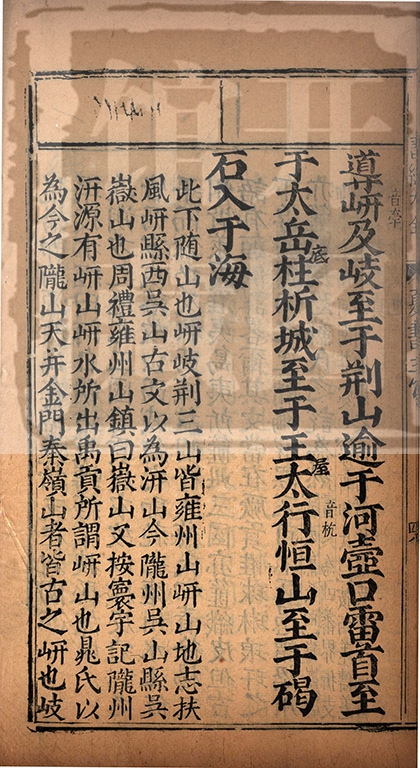 導岍及岐至于荆山逾于河壺口雷首至
音牽
于太岳底柱析城至于王屋太行恒山至于碣
音杭
石入于海
此下随山也岍岐荆三山皆雍州山岍山地志扶
風岍縣西吳山古文以為汧山今隴州吳山縣吳
嶽山也周禮雍州山鎮曰嶽山又按寰宇記隴州
汧源有岍山岍水所出禹貢所謂岍山也晁氏以
為今之隴山天井金門秦嶺山者皆古之岍也岐